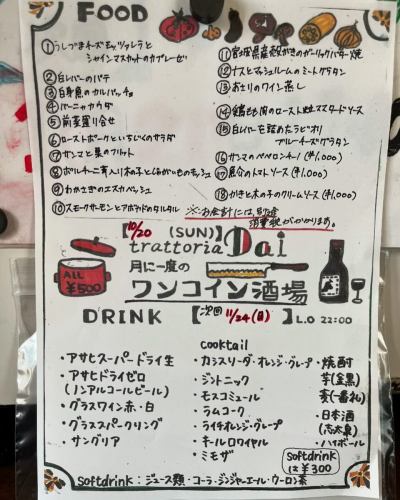 FOOD
①うしづまチーズモッツァレラと
シャインマスカットのカプレーゼ
②白レバーのパテ
③白身魚のカルパッチョ
④バーニャカウダ
⑤前菜盛り合せ
⑥ローストポークといちじくのサラダ
⑦サンマと栗のフリット
⑧ポルチーニ茸入り木の子とじゃがいものモッシュ
⑨わかさぎのエスカベッシュ
⑩スモークサーモンとアボカドのタルタル
⑪宮城県産殻がきのガーリックバター焼
⑫ナスとマッシュルームのミートグラタン
⑬あさりのワイン蒸し
⑭鶏もも肉のロースト 粒マスタードソース
⑮白レバーを詰めたラビオリ
ブルーチーズグラタン
⑯サンマのペペロンチーノ(¥1,000)
⑰魚介のトマトソース(¥1,000)
⑱かきと木の子のクリームソース(¥1,000)
※お会計には、別途
消費税がかかります。
【10/20 (SUN)】
trattoria Dai
月に一度の
ワンコイン酒場
ALL
¥500
DRINK 【次回 11/24(日)】 L.O 22:00
・アサヒスーパードライ生
・アサヒドライゼロ
(ノンアルコールビール)
・グラスワイン赤・白
・グラススパークリング
・サングリア
cocktail
・カシスソーダ・オレンジ・グレープ
・ジントニック
・モスコミュール
・ラムコーク
・ライチオレンジ・グレープ
・キールロワイヤル
・ミモザ
・焼酎
芋(金黒)
麦(一番札)
・日本酒
(志太泉)
・ハイボール
Softdrink
は¥300
Softdrink：ジュース類・コーラ・ジンジャーエール・ウーロン茶